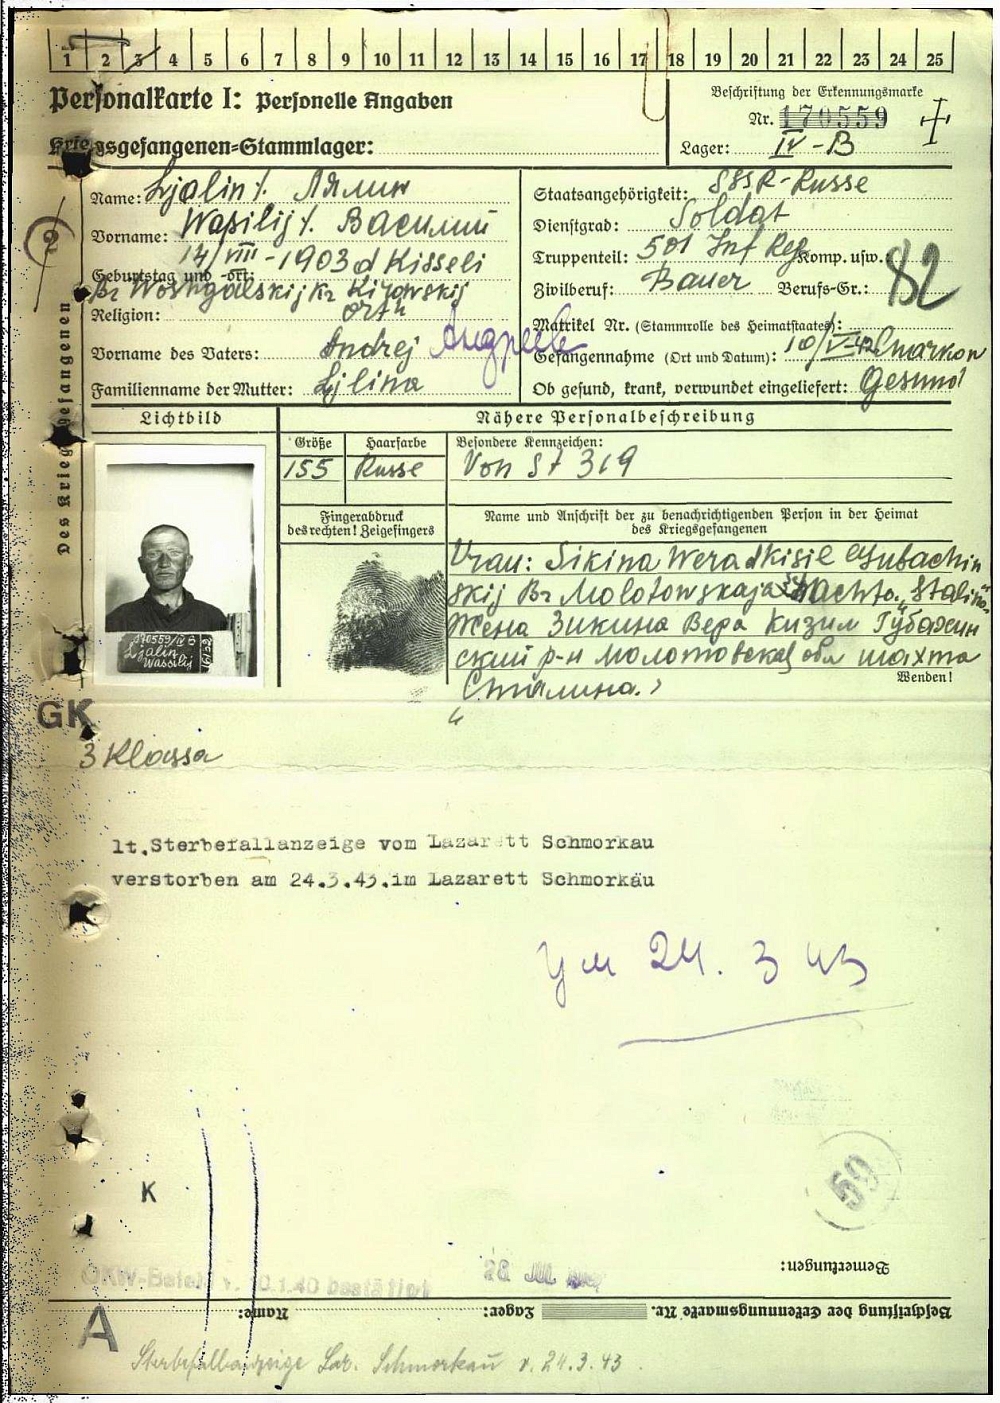 1 2 3 4 5 6 7 8 9 10 11 12 13 14 15 16 17 18 19 20 21 22 23 24 25
Personalkarte I: Personelle Angaben
Kriegsgefangenen-Stammlager:
Beschriftung der Erkennungsmarke
Nr. 170559
Lager: IV-B
Des Kriegsgefangenen
2
Name: Ljalin Лялин
Vorname: Wasilij Василий
14/VIII-1903 d Kisseli
Geburtstag und -ort:
Religion: Orth
Vorname des Vaters: Andrej Андреев
Familienname der Mutter: Ljlina
Staatsangehörigkeit: SSSR-Russe
Dienstgrad: Soldat
Truppenteil: 501 Inf Reg Komp. usw.:
Zivilberuf: Bauer Berufs-Gr.: 82
Matrikel Nr. (Stammrolle des Heimatstaates):
Gefangennahme (Ort und Datum): 10/V-42 Charkow
Ob gesund, krank, verwundet eingeliefert: Gesund
Lichtbild
Nähere Personalbeschreibung
Größe Haarfarbe Besondere Kennzeichen:
155 Russe Von St 319
Fingerabdruck
des rechten! Zeigefingers
Name und Anschrift der zu benachrichtigenden Person in der Heimat
des Kriegsgefangenen
170559/IV B
Ljalin,
Wassilij
Frau: Sikina Wera Kisil Gubachin
skij Br Molotowskaja Schachta "Stalina"
Жена Зикина Вера Кизил Губахин
ский р-н Молотовская обл шахта
"Сталина"
Wenden!
GK
3 Klassa
lt.Sterbefallanzeige vom Lazarett Schmorkau
verstorben am 24.3.43.im Lazarett Schmorkau
Ум 24. 3 43
59
K
Bemerkungen:
OKW-Befehl v. 10.1.40 bestätigt
Beschriftung der Erkennungsmarke Nr. Lager: Name:
A
Sterbefallanzeige Laz. Schmorkau v. 24.3.43.